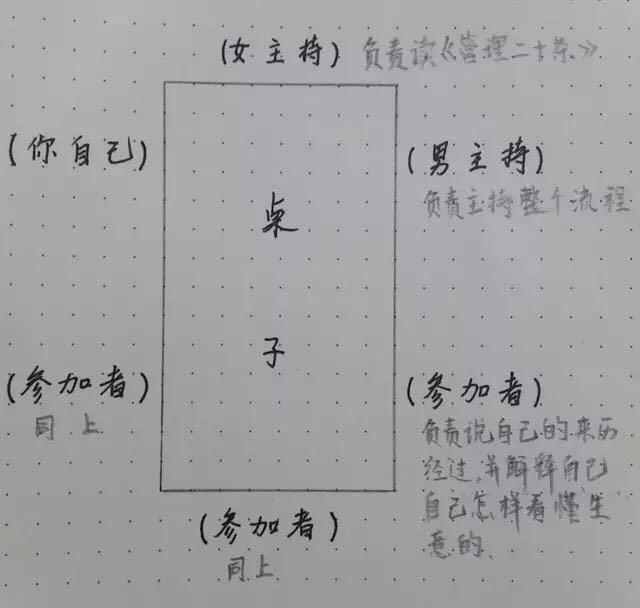 (女主持) 负责读《管理二十条》
(你自己)
(男主持)
负责主持整个流程
桌
子
(参加者)
同上
(参加者)
负责说自己的来历
经过，并解释自己
自己怎样看懂生
意的、
(参加者)
同上